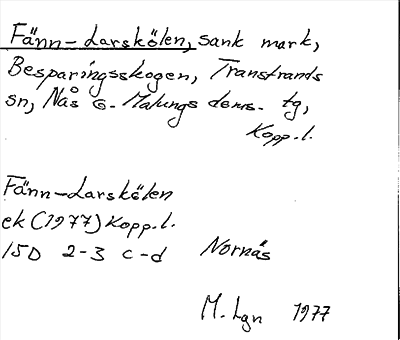 Fänn-Larskölen, sank mark,
Besparingsskogen, Transtrands
sn, Nås o. Malungs doms. tg,
Kopp.l.
Fänn-Larskölen
ek (1977) Kopp.l.
15D 2-3 c-d Nornäs
M. Lgn 1977